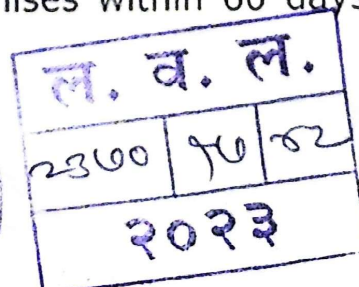 within 60 days
ल. व. ल.
२३७० १७ ४२
२०२३